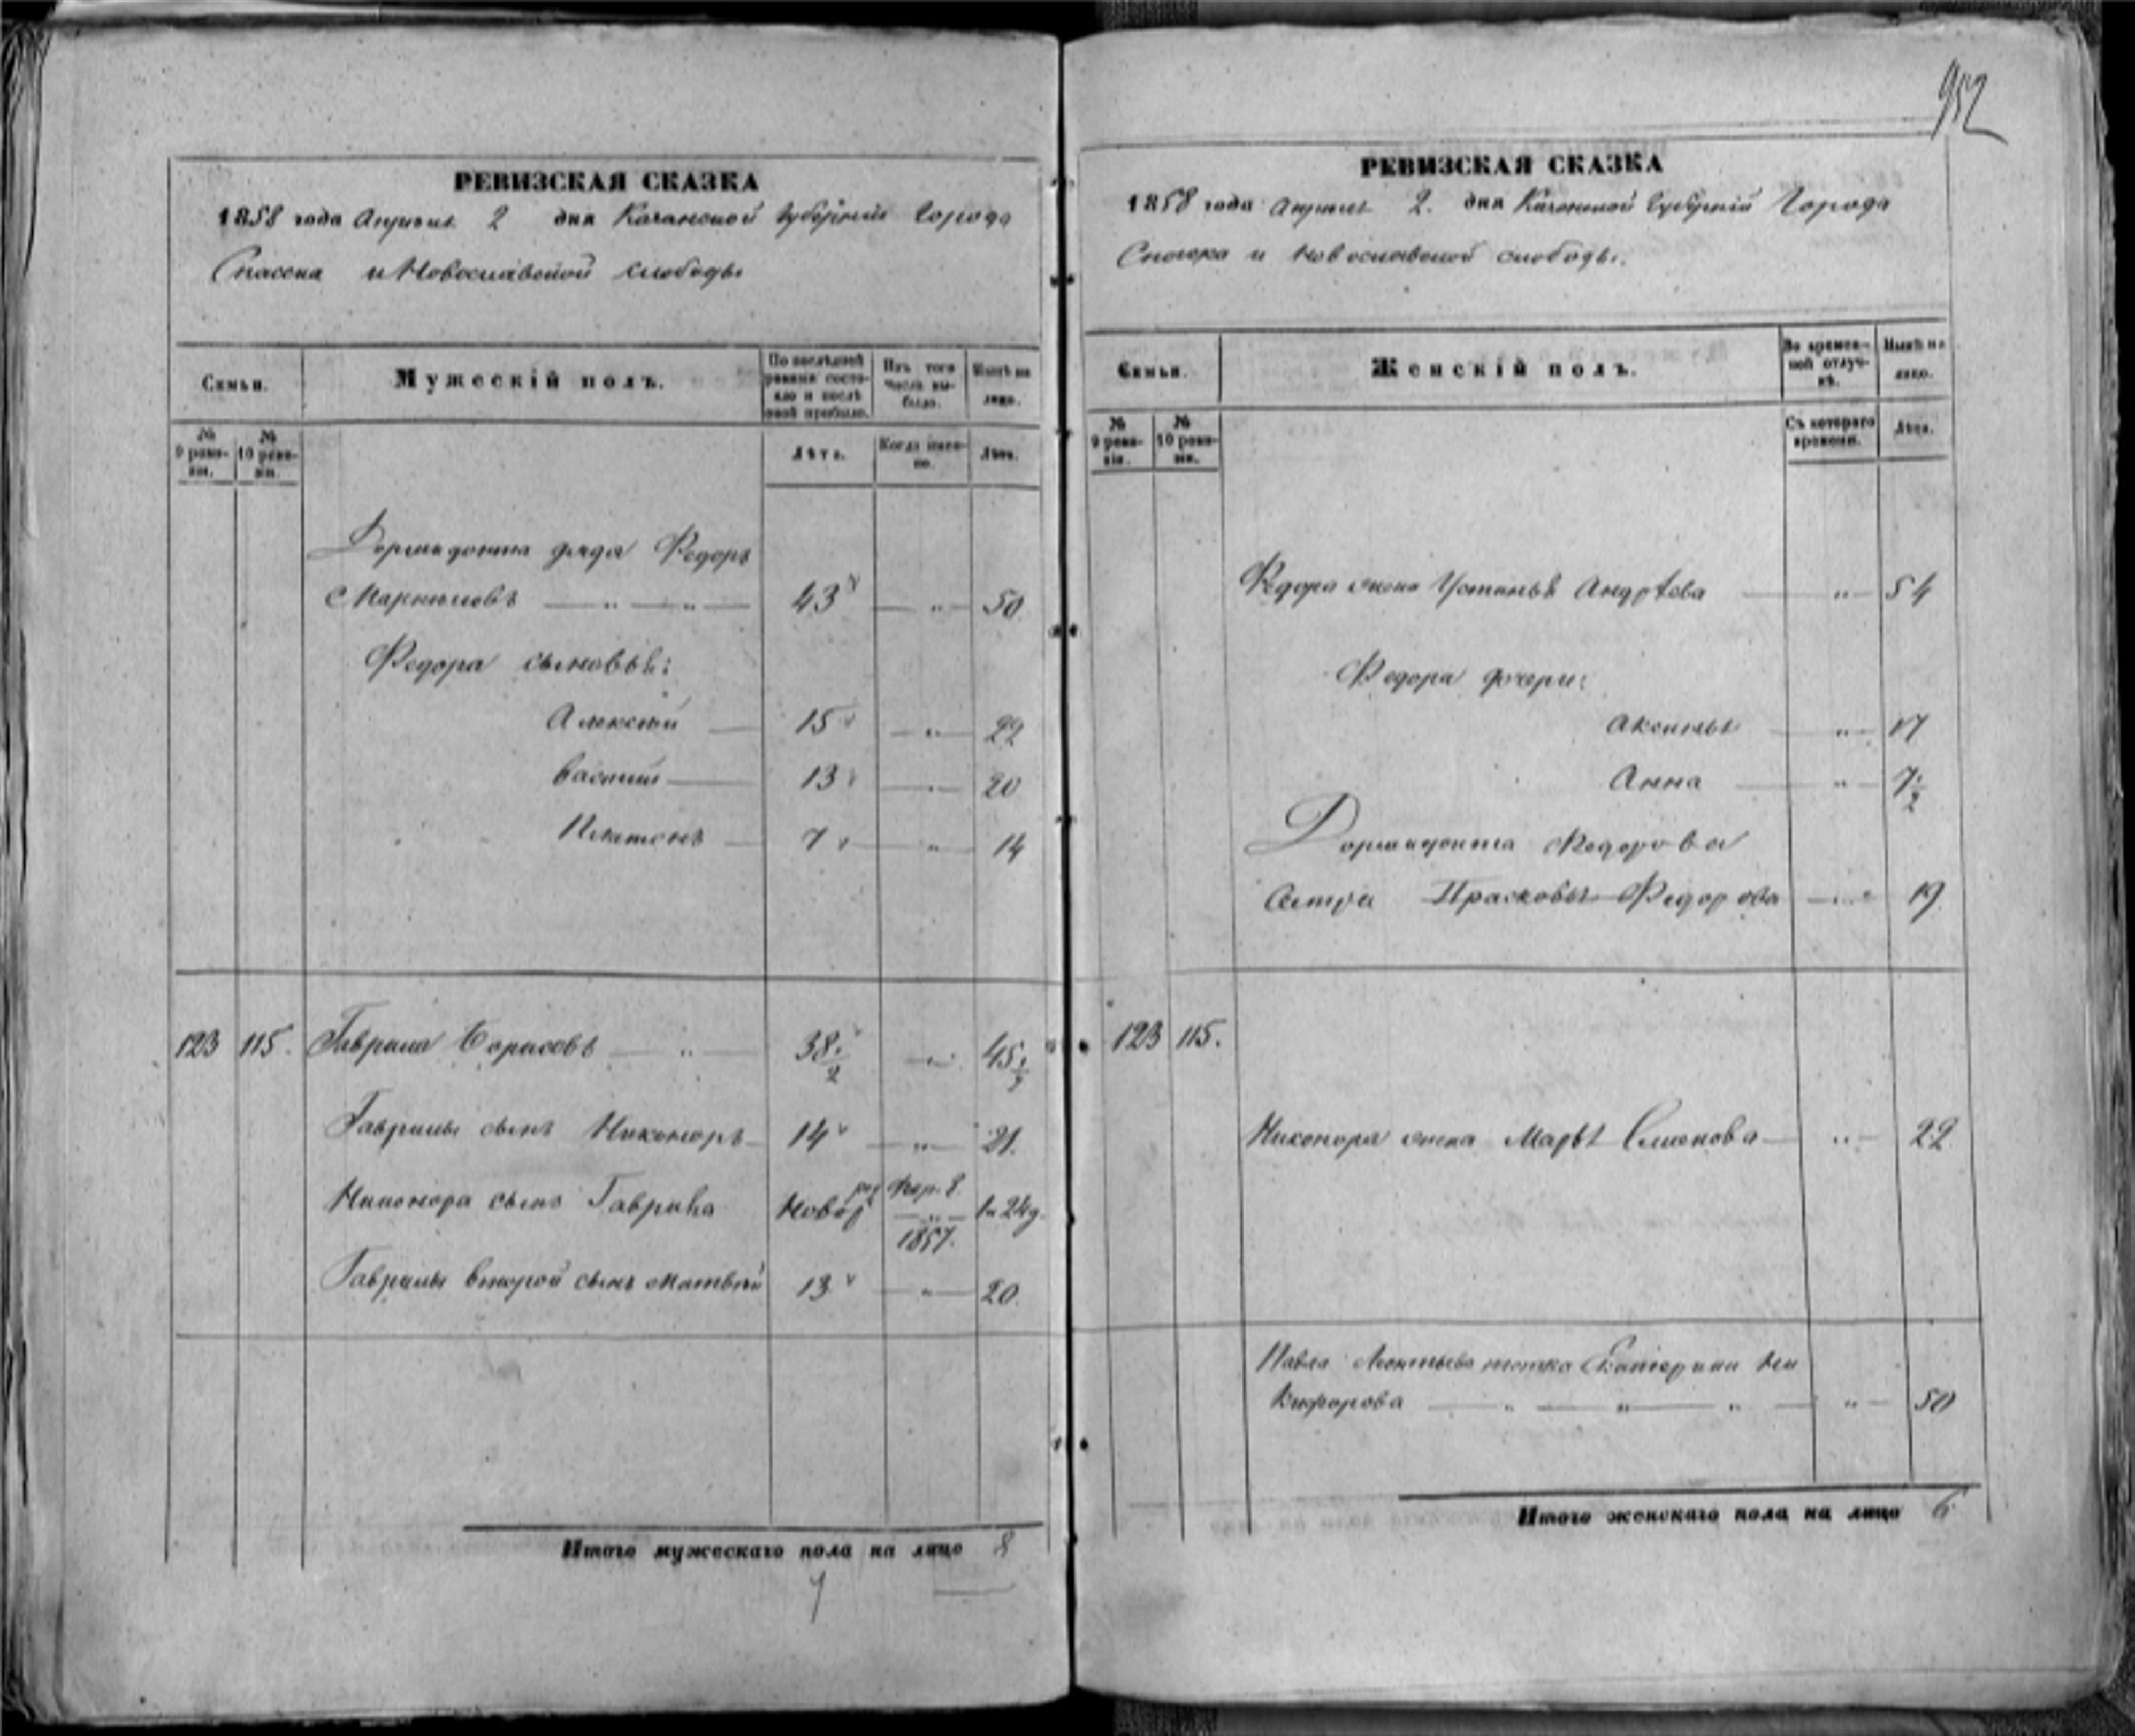 РЕВИЗСКАЯ СКАЗКА
1858 года Апреля 2 дня Казанской Губернии Города
Спасска и Новоспасской слободы
Семьи.
Мужескій полъ.
По послѣдней ревизіи состояло и послѣ оной прибыло.
Изъ того числа выбыло.
Нынѣ на лицо.
№ 9 ревизіи.
№ 10 ревизіи.
Лѣта.
Когда именно.
Лѣта.
Дормидонта дядя Федоръ
43 — „ — 50
Федора сыновья:
Алексѣй — 15 — „ — 22
Василій — 13 — „ — 20
Платонъ — 7 — „ — 14
123 115. Гаврила Борисовъ — „ — 38 1/2 — „ — 45 1/2
Гаврилы сынъ Никоноръ — 14 — „ — 21.
Никонора сынъ Гаврила Новор 1857. 24 д.
Гаврилы второй сынъ Матвѣй 13 — „ — 20.
Итого мужескаго пола на лицо 8
7
952
РЕВИЗСКАЯ СКАЗКА
1858 года Апреля 2. дня Казанской Губерніи Города
Спасска и Новоспасской слободы.
Семьи.
Женскій полъ.
Во временной отлучкѣ.
Нынѣ на лицо.
№ 9 ревизіи.
№ 10 ревизіи.
Съ котораго времени.
Лѣта.
Федора жена Устинья Андрѣева — „ — 54
Федора дочери:
Аксинья — „ — 17
Анна — „ — 7 1/2
Дормидонта Федорова
сестра Прасковья Федорова — „ — 19
123 115.
Никонора жена Марья Семенова — „ — 22
Павла Леонтьева тетка Екатерина Ни
кифорова — „ — „ — „ — „ — 50
Итого женскаго пола на лицо 6